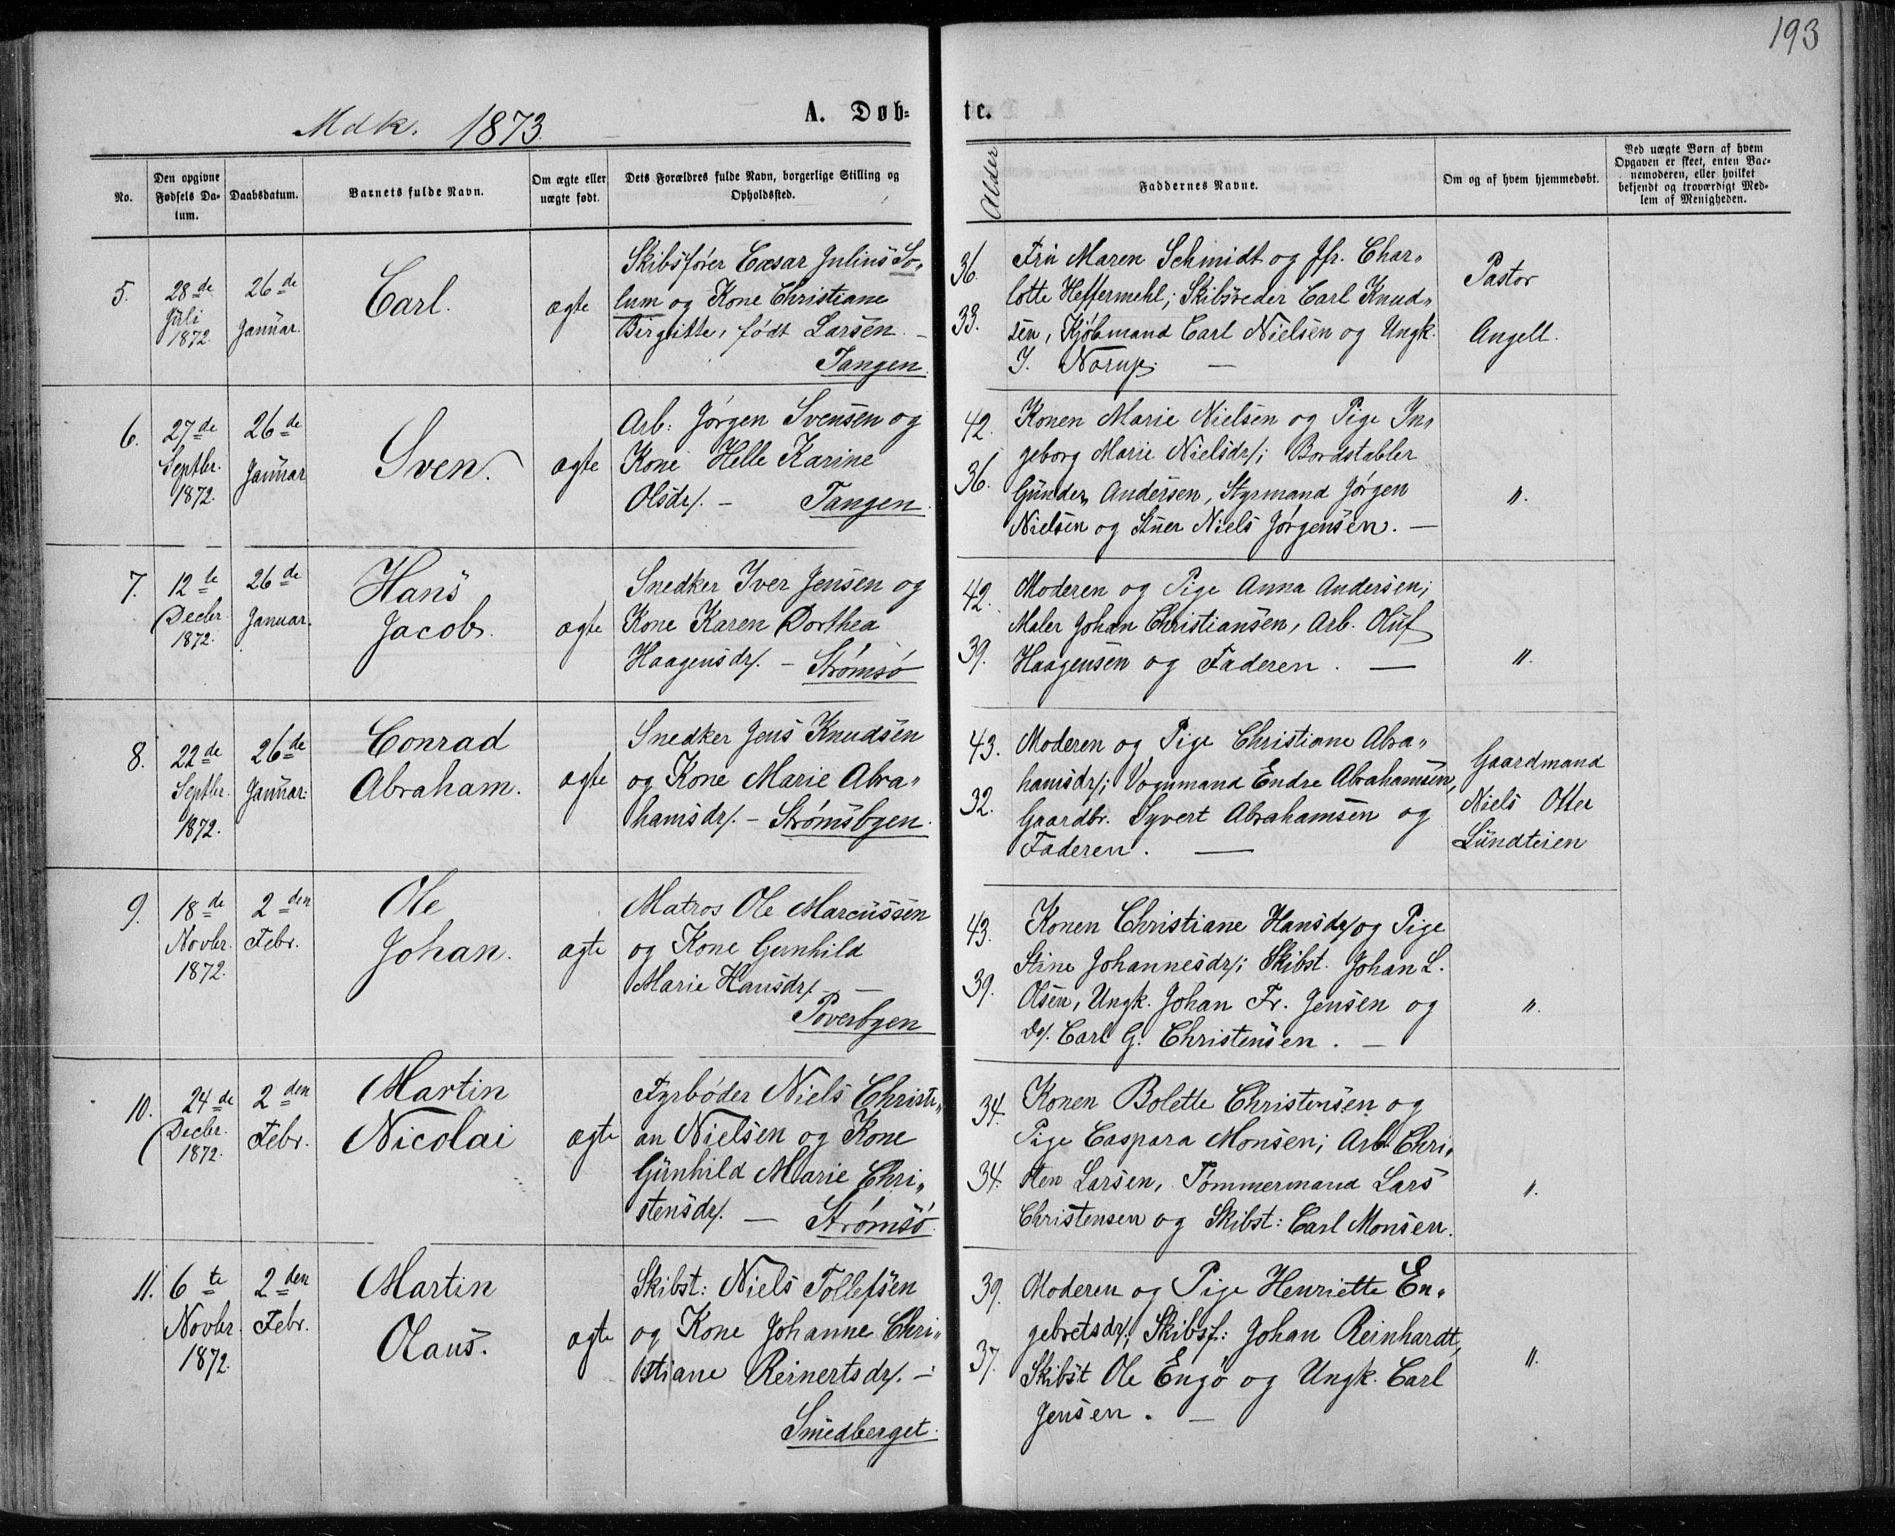 193
Mdk. 1873.
A. Døb-
te.
No.
Den opgivne Fødsels Da-
tum.
Daabsdatum.
Barnets fulde Navn.
Om ægte eller
uægte født.
Dets Forældres fulde Navn, borgerlige Stilling og
Opholdssted.
Alder
Faddernes Navne.
Om og af hvem hjemmedøbt.
Ved uægte Børn af hvem
Opgaven er skeet, enten Bar-
nemoderen, eller hvilket
bekjendt og troværdigt Med-
lem af Menigheden.
5.
28de
Juli
1872.
26de
Januar.
Carl.
ægte
Skibsfører Cæsar Julius So„
lum og Kone Christiane
Birgitte, født Larsen. –
Tangen.
36.
33.
Fru Maren Schmidt og Jfr. Char„
lotte Heffermehl; Skibsreder Carl Knud„
sen, Kjøbmand Carl Nielsen og Ungk.
J. Norup. —
Pastor
Angell.
6.
27de
Septbr.
1872.
26de
Januar
Sven.
ægte
Arb: Jørgen Svensen og
Kone Helle Karine
Olsdr/. – Tangen.
42.
36.
Konen Marie Nielsen og Pige In„
geborg Marie Nielsdr/; Bordstabler
Gunder Andersen, Styrmand Jørgen
Nielsen og Stuer Niels Jørgensen. —
".
7.
12te
Decbr
1872.
26de
Januar.
Hans
Jacob.
ægte
Snedker Iver Jensen og
Kone Karen Dorthea
Haagensdr/. – Strømsø
42.
39.
Moderen og Pige Anna Andersen;
Maler Johan Christiansen, Arb. Oluf
Haagensen og Faderen. —
".
8.
22de
Septbr.
1872.
26de
Januar.
Conrad
Abraham.
ægte
Snedker Jens Knudsen
og Kone Marie Abra„
hamsdr/. – Strømsbyen.
43.
32.
Moderen og Pige Christiane Abra„
hamsdr/; Vognmand Endre Abrahamsen,
Gaardbr. Syvert Abrahamsen og
Faderen. —
Gaardmand
Niels Otter
Lundteien
9.
18de
Novbr.
1872.
2den
Febr.
Ole
Johan.
ægte
Matros Ole Marcussen
og Kone Gunhild
Marie Hansdr/. –
Toverbyen
43.
39.
Konen Christiane Hansdr/ og Pige
Stine Johannesdr/; Skibst. Johan L.
Olsen, Ungk. Johan Fr. Jensen og
Do/. Carl G. Christensen. —
".
10.
24de
Decbr.
1872.
2den
Febr.
Martin
Nicolai
ægte
Fyrbøder Niels Christi„
an Nielsen og Kone
Gunhild Marie Chri„
stensdr/. — Strømsø.
34.
34.
Konen Bolette Christensen og
Pige Caspara Monsen; Arb. Chri„
sten Larsen, Tømmermand Lars
Christensen og Skibst: Carl Monsen.
".
11.
6te
Novbr
1872.
2den
Febr.
Martin
Olaus.
ægte
Skibst: Niels Tollefsen
og Kone Johanne Chri„
stiane Reinertsdr/. –
Smedberget.
39.
37.
Moderen og Pige Henriette En„
gebretsdr/; Skibsf: Johan Reinhardt,
Skibst Ole Engø og Ungk. Carl
Jensen. —
".